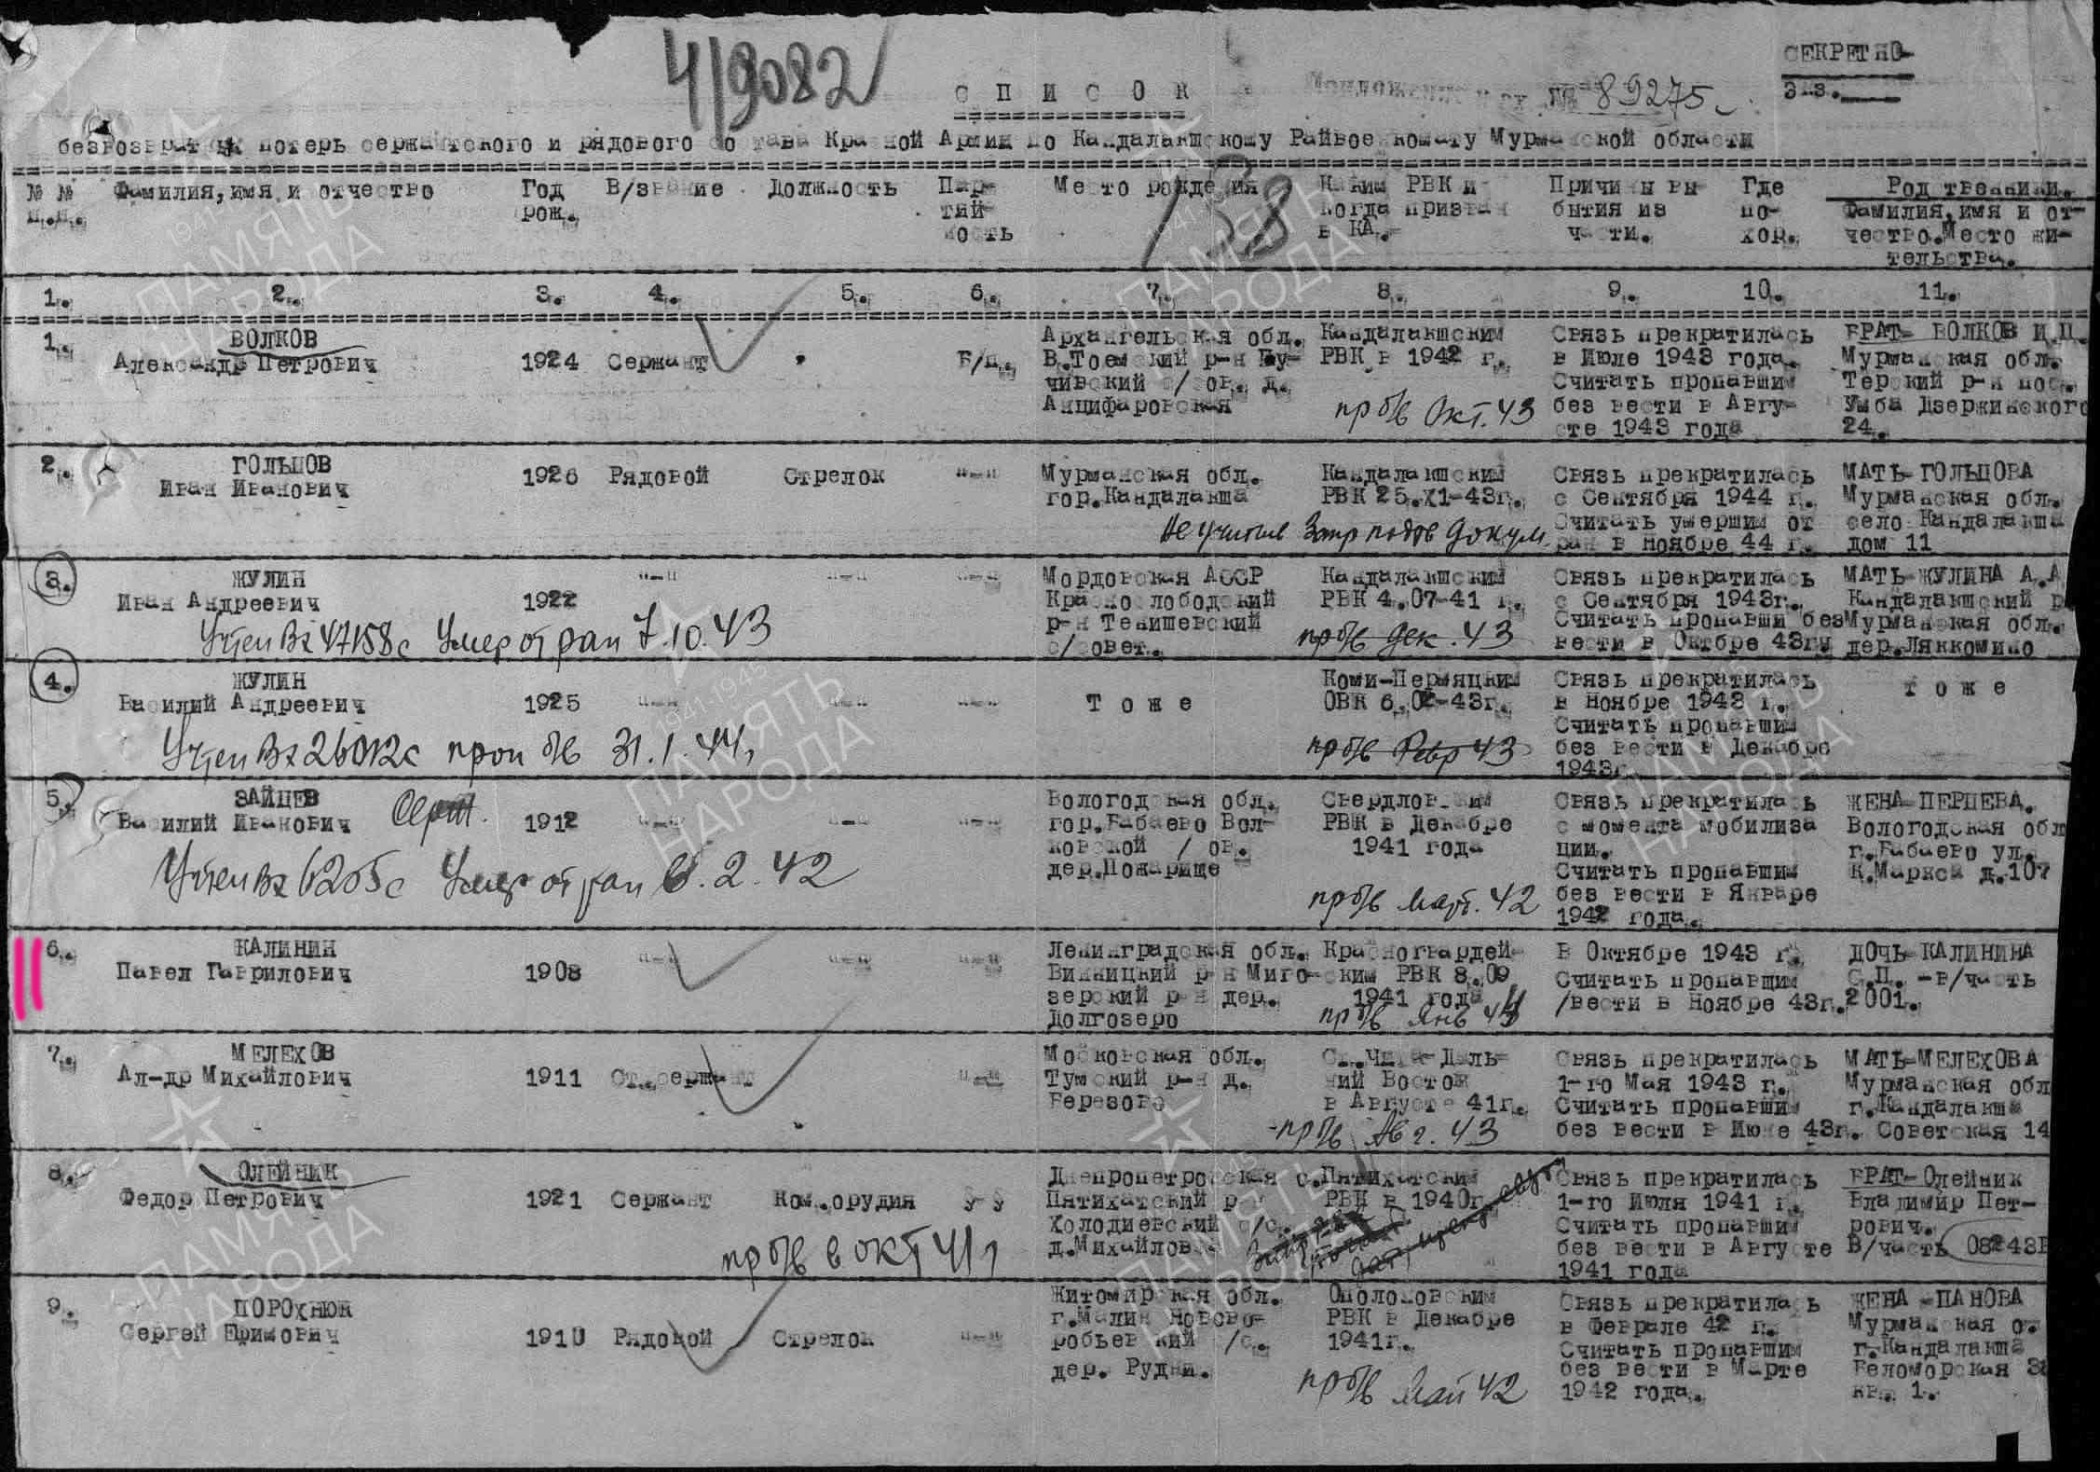 4/9082
СЕКРЕТНО
Экз.
С П И С О К
89275с
безвозвратных потерь сержантского и рядового состава Красной Армии по Кандалакшскому Райвоенкомату Мурманской области
№ № п.п. Фамилия, имя и отчество Год рож. В/звание Должность Пар-тий-ность Место рождения Каким РВК и когда призван в КА. Причины вы-бытия из части. Где по-хор. Родственники. Фамилия, имя и от-чество. Место жи-тельства.
138
1. 2. 3. 4. 5. 6. 7. 8. 9. 10. 11.
1. ВОЛКОВ
Александр Петрович 1924 Сержант Б/п.
Архангельская обл.
В.Тоемский р-н Пу-
чивский с/сов. д.
Анцифаровская
Кандалакшским
РВК в 1942 г.
пр б/в Окт. 43
Связь прекратилась
в Июле 1943 года.
Считать пропавшим
без вести в Авгу-
сте 1943 года
БРАТ- ВОЛКОВ И.П.
Мурманская обл.
Терский р-н пос.
Умба Дзержинского
24.
2. ГОЛЬЦОВ
Иван Иванович 1926 Рядовой Стрелок "-"
Мурманская обл.
гор.Кандалакша
Кандалакшским
РВК 25.X1-43г.
Не учтен Запр подтв докум.
Связь прекратилась
с Сентября 1944 г.
Считать умершим от
ран в Ноябре 44 г.
МАТЬ-ГОЛЬЦОВА
Мурманская обл.
село Кандалакша
дом 11
3. ЖУЛИН
Иван Андреевич 1922 "-" "-" "-"
Учтен Вх 47158с Умер от ран 7.10.43
Мордовская АССР
Краснослободский
р-н Тенишевский
с/совет.
Кандалакшским
РВК 4.07-41 г.
пр б/в дек. 43
Связь прекратилась
с Сентября 1943г.
Считать пропавши без
вести в Октбре 43гм
МАТЬ-ЖУЛИНА А.А
Кандалакшский р
Мурманская обл.
дер.Ляккомино
4. ЖУЛИН
Василий Андреевич 1925 "-" "-" "-"
Учтен Вх 26012с проп б/в 31.1.44г
Т о ж е
Коми-Пермяцким
ОВК 6.02-43г.
пр б/в Февр 43
Связь прекратилась
в Ноябре 1943 г.
Считать пропавшим
без вести в Декабре
1943г
Т о ж е
5. ЗАЙЦЕВ
Василий Иванович Серж. 1912 "-" "-" "-"
Учтен Вх 6205с Умер от ран 6.2.42
Вологодская обл.
гор.Бабаево Вол-
ковской с/сов.
дер.Пожарище
Свердловским
РВК в Декабре
1941 года
пр б/в март. 42
Связь прекратилась
с момента мобилиза
ции.
Считать пропавшим
без вести в Январе
1942 года.
ЖЕНА-ПЕРЦЕВА.
Вологодская обл
г.Бабаево ул.
К.Маркса д.107
6. КАЛИНИН
Павел Гаврилович 1908 "-" "-" "-"
Ленинградская обл.
Винницкий р-н Миго-
зерский р-н дер.
Долгозеро
Красногвардей-
ским РВК 8.09
1941 года
пр б/в Янв 44
В Октябре 1943 г.
Считать пропавшим
/вести в Ноябре 43г.
ДОЧЬ-КАЛИНИНА
С.П. -в/часть
2001.
7. МЕЛЕХОВ
Ал-др Михайлович 1911 Ст.сержант "-"
Московская обл.
Тумский р-н д.
Березово
Ст.Чита-Даль-
ний Восток
в Августе 41г.
пр б/в Авг. 43
Связь прекратилась
1-го Мая 1943 г.
Считать пропавшим
без вести в Июне 43г.
МАТЬ-МЕЛЕХОВА
Мурманская обл
г.Кандалакша
Советская 14
8. ОЛЕЙНИК
Федор Петрович 1921 Сержант Ком.орудия
пр б/в в окт 41г
Днепропетровская о.
Пятихатский р-
Холодиевский с/с.
д.Михайловка
Пятихатским
РВК в 1940г.
Связь прекратилась
1-го Июля 1941 г.
Считать пропавшим
без вести в Августе
1941 года
БРАТ-Олейник
Владимир Пет-
рович.
В/часть 08243В
9. ПОРОХНЮК
Сергей Ефимович 1910 Рядовой Стрелок "-"
Житомирская обл.
г.Малин Новово-
робьевский с/с.
дер. Рудня.
Ополоновским
РВК в Декабре
1941г.
пр б/в Май 42
Связь прекратилась
в Феврале 42 г.
Считать пропавшим
без вести в Марте
1942 года.
ЖЕНА -ПАНОВА
Мурманская о.
г.Кандалакша
Беломорская
кв. 1.
ПАМЯТЬ НАРОДА